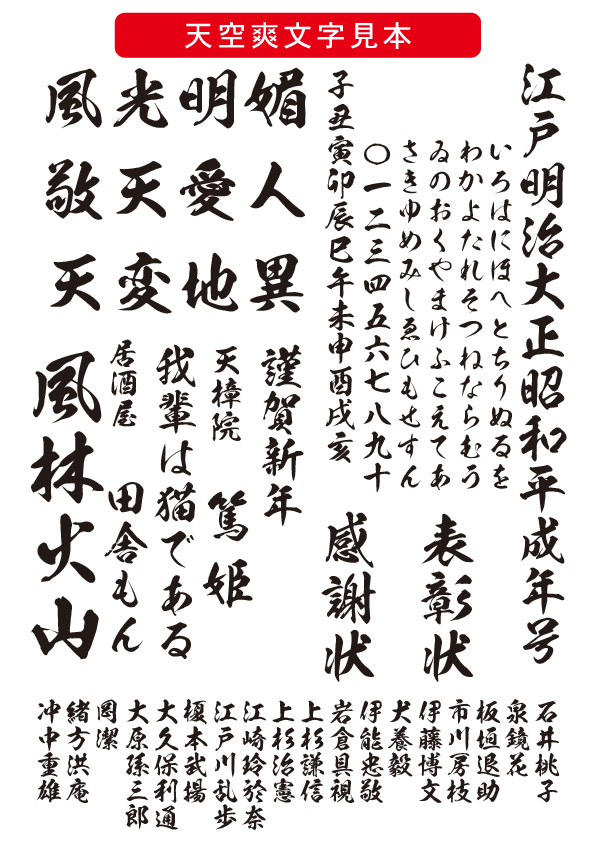 天空爽文字見本
江戸明治大正昭和平成年号
いろはにほへとちりぬるを
わかよたれそつねならむう
ゐのおくやまけふこえてあ
さきゆめみしゑひもせすん
〇一二三四五六七八九十
子丑寅卯辰巳午未申酉戌亥
表彰状
感謝状
媚人異
明愛地
光天変
風敬天
謹賀新年
天樟院 篤姫
我輩は猫である
居酒屋 田舎もん
風林火山
石井桃子
泉鏡花
板垣退助
市川房枝
伊藤博文
犬養毅
伊能忠敬
岩倉具視
上杉謙信
上杉治憲
江崎玲於奈
江戸川乱歩
榎本武揚
大久保利通
大原孫三郎
岡潔
緒方洪庵
沖中重雄